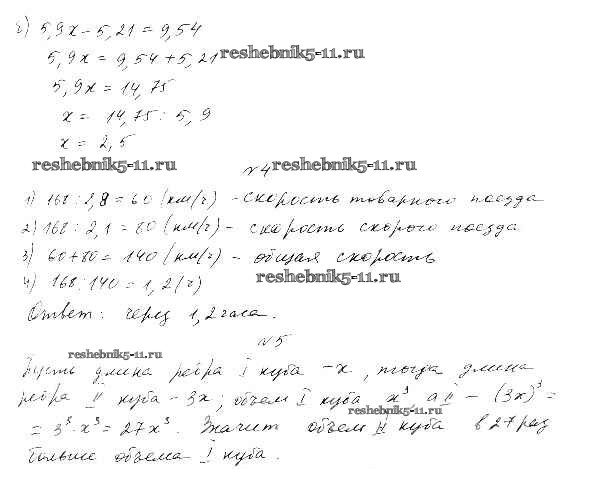 г) 5,9x - 5,21 = 9,54
5,9x = 9,54 + 5,21 reshebnik5-11.ru
5,9x = 14,75
x = 14,75 : 5,9
x = 2,5
reshebnik5-11.ru №4 reshebnik5-11.ru
1) 168 : 2,8 = 60 (км/ч) - скорость товарного поезда
2) 168 : 2,1 = 80 (км/ч) - скорость скорого поезда
3) 60 + 80 = 140 (км/ч) - общая скорость
4) 168 : 140 = 1,2 (ч) reshebnik5-11.ru
Ответ: через 1,2 часа.
№5
reshebnik5-11.ru
Пусть длина ребра I куба - x, тогда длина
ребра II куба - 3x; объем I куба x³, а II - (3x)³ =
reshebnik5-11.ru
= 3³ · x³ = 27x³. Значит объем II куба в 27 раз
больше объема I куба.